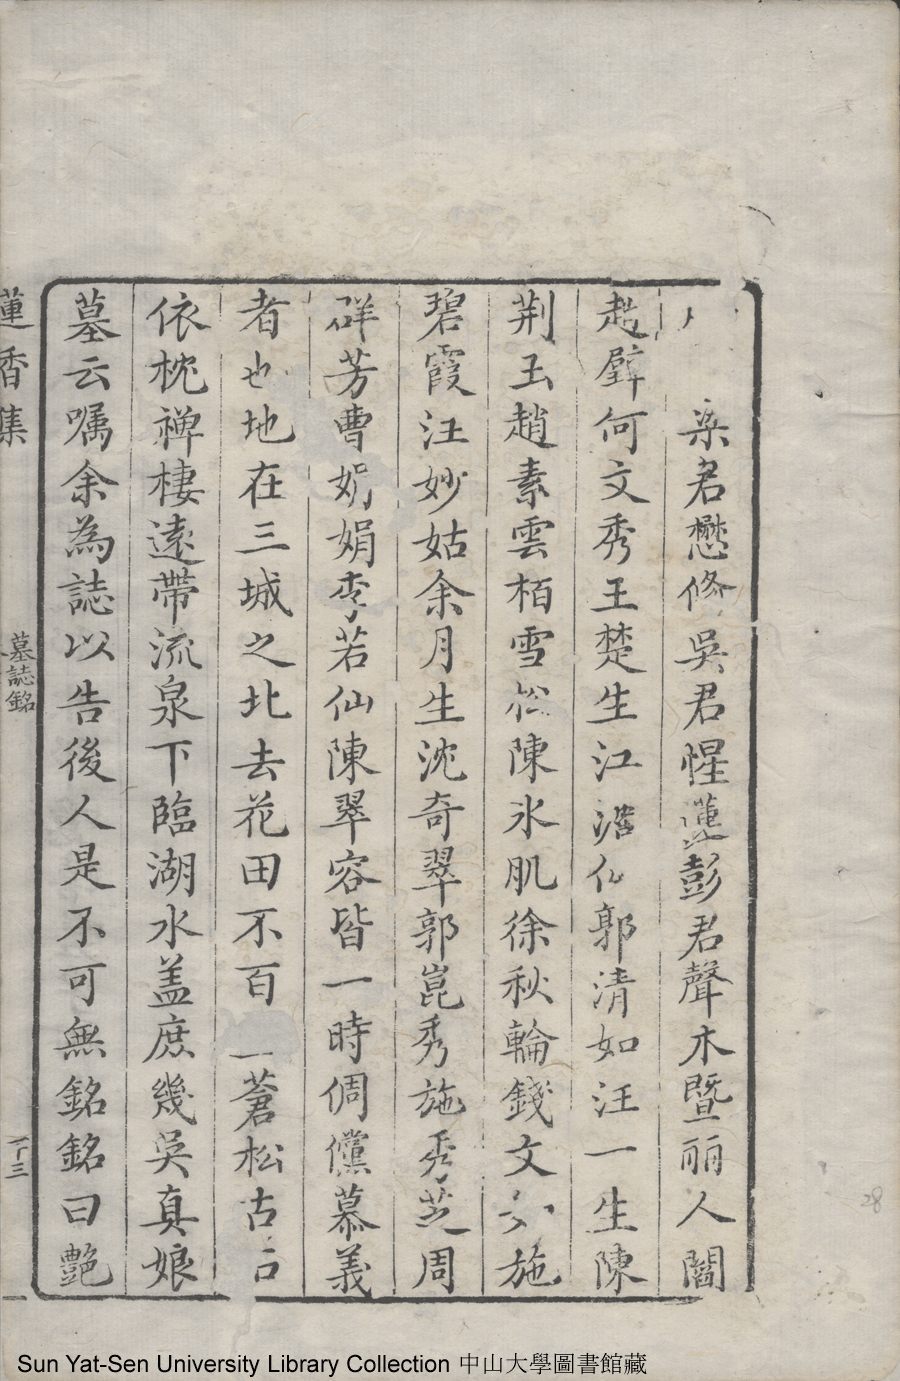 梁君懋修吳君惺蓮彭君聲木暨丽人閻
趙璧何文秀王楚生江澔仙郭清如汪一生陳
荆玉趙素雲栢雪松陳氷肌徐秋輪錢文施
碧霞汪妙姑余月生沈奇翠郭崑秀施秀芝周
群芳曹娟娟李若仙陳翠容皆一時倜儻慕義
者也地在三城之北去花田不百蒼松古
依枕禅棲遠帶流泉下臨湖水盖庶幾吳真娘
墓云嘱余為誌以告後人是不可無銘銘曰艷
蓮香集
墓誌銘
十三
28
Sun Yat-Sen University Library Collection 中山大學圖書館藏